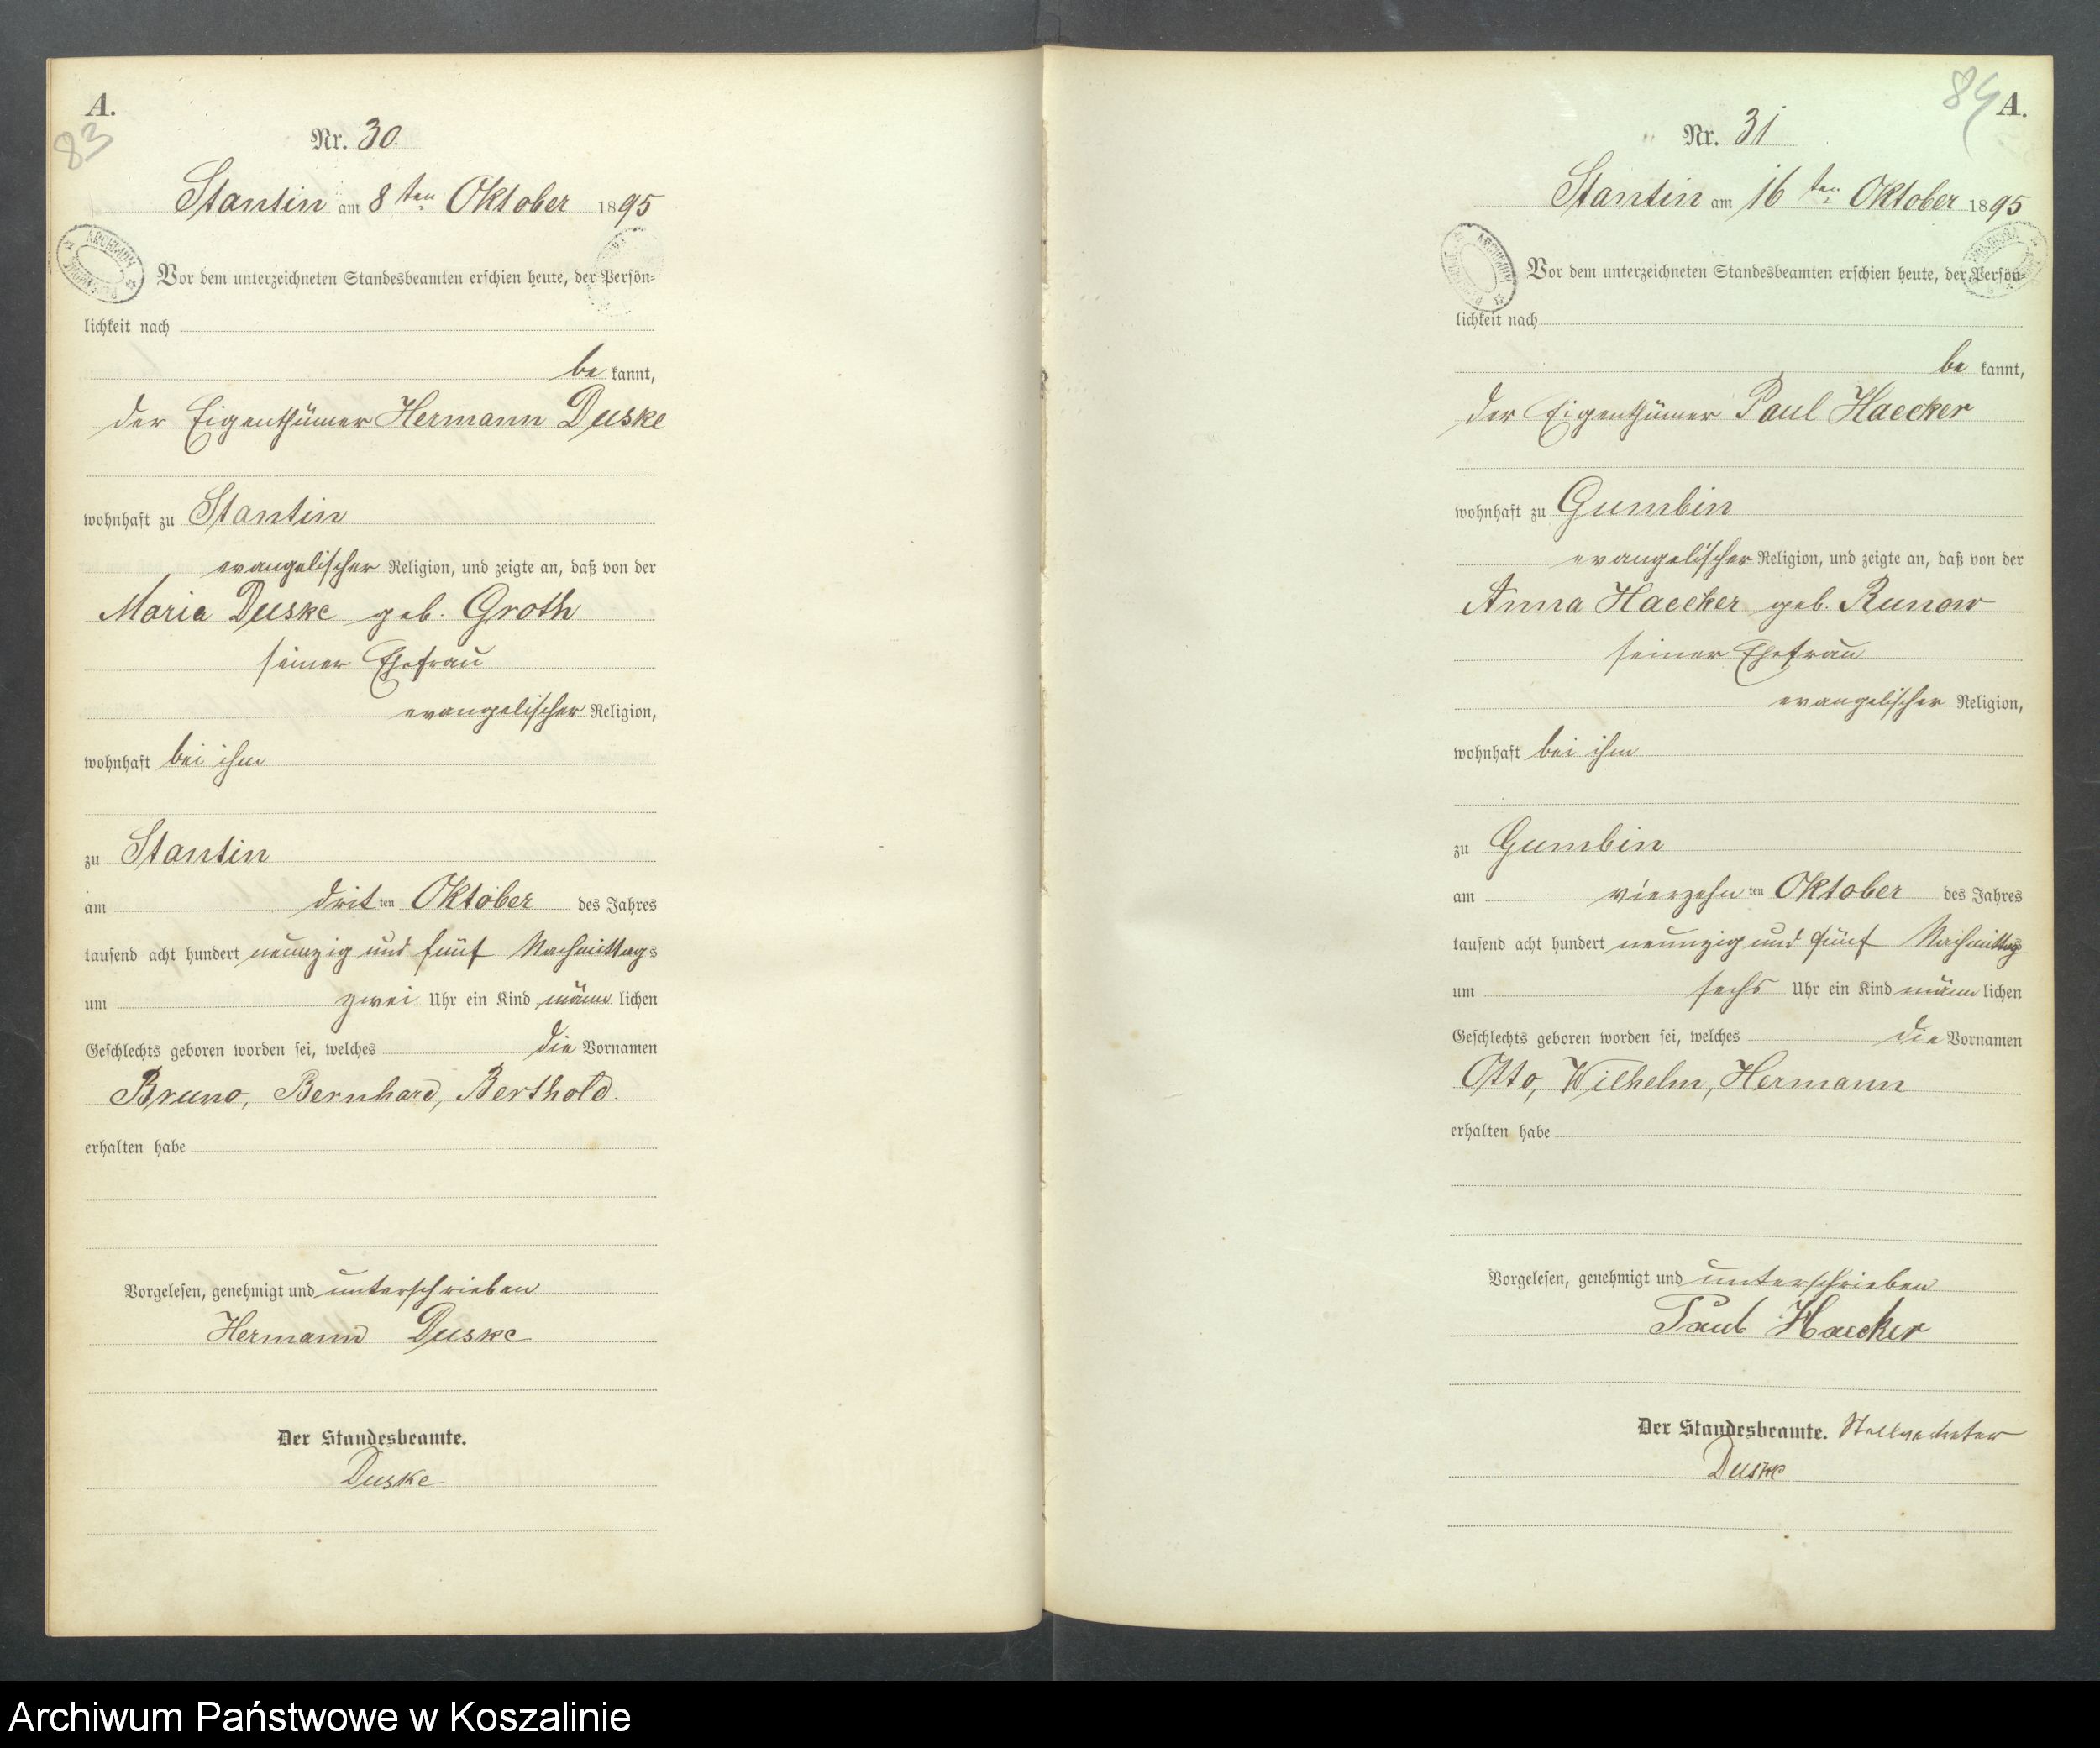 A.
83
Nr. 30.
Stantin am 8 ten Oktober 1895
Vor dem unterzeichneten Standesbeamten erschien heute, der Persön=
lichkeit nach
be kannt,
der Eigenthümer Hermann Duske
wohnhaft zu Stantin
evangelischer Religion, und zeigte an, daß von der
Maria Duske geb. Groth
seiner Ehefrau
evangelischer Religion,
wohnhaft bei ihm
zu Stantin
am drit ten Oktober des Jahres
tausend acht hundert neunzig und fünf Nachmittags
um zwei Uhr ein Kind männ lichen
Geschlechts geboren worden sei, welches die Vornamen
Bruno, Bernhard, Berthold.
erhalten habe
Vorgelesen, genehmigt und unterschrieben
Hermann Duske
Der Standesbeamte.
Duske
84
A.
Nr. 31
Stantin am 16 ten Oktober 1895
Vor dem unterzeichneten Standesbeamten erschien heute, der Persön=
lichkeit nach
be kannt,
der Eigenthümer Paul Haecker
wohnhaft zu Gumbin
evangelischer Religion, und zeigte an, daß von der
Anna Haecker geb. Runow
seiner Ehefrau
evangelischer Religion,
wohnhaft bei ihm
zu Gumbin
am vierzehn ten Oktober des Jahres
tausend acht hundert neunzig und fünf Nachmittags
um sechs Uhr ein Kind männ lichen
Geschlechts geboren worden sei, welches die Vornamen
Otto, Wilhelm, Hermann
erhalten habe
Vorgelesen, genehmigt und unterschrieben
Paul Haecker
Der Standesbeamte. Stellvertreter
Duske
Archiwum Państwowe w Koszalinie